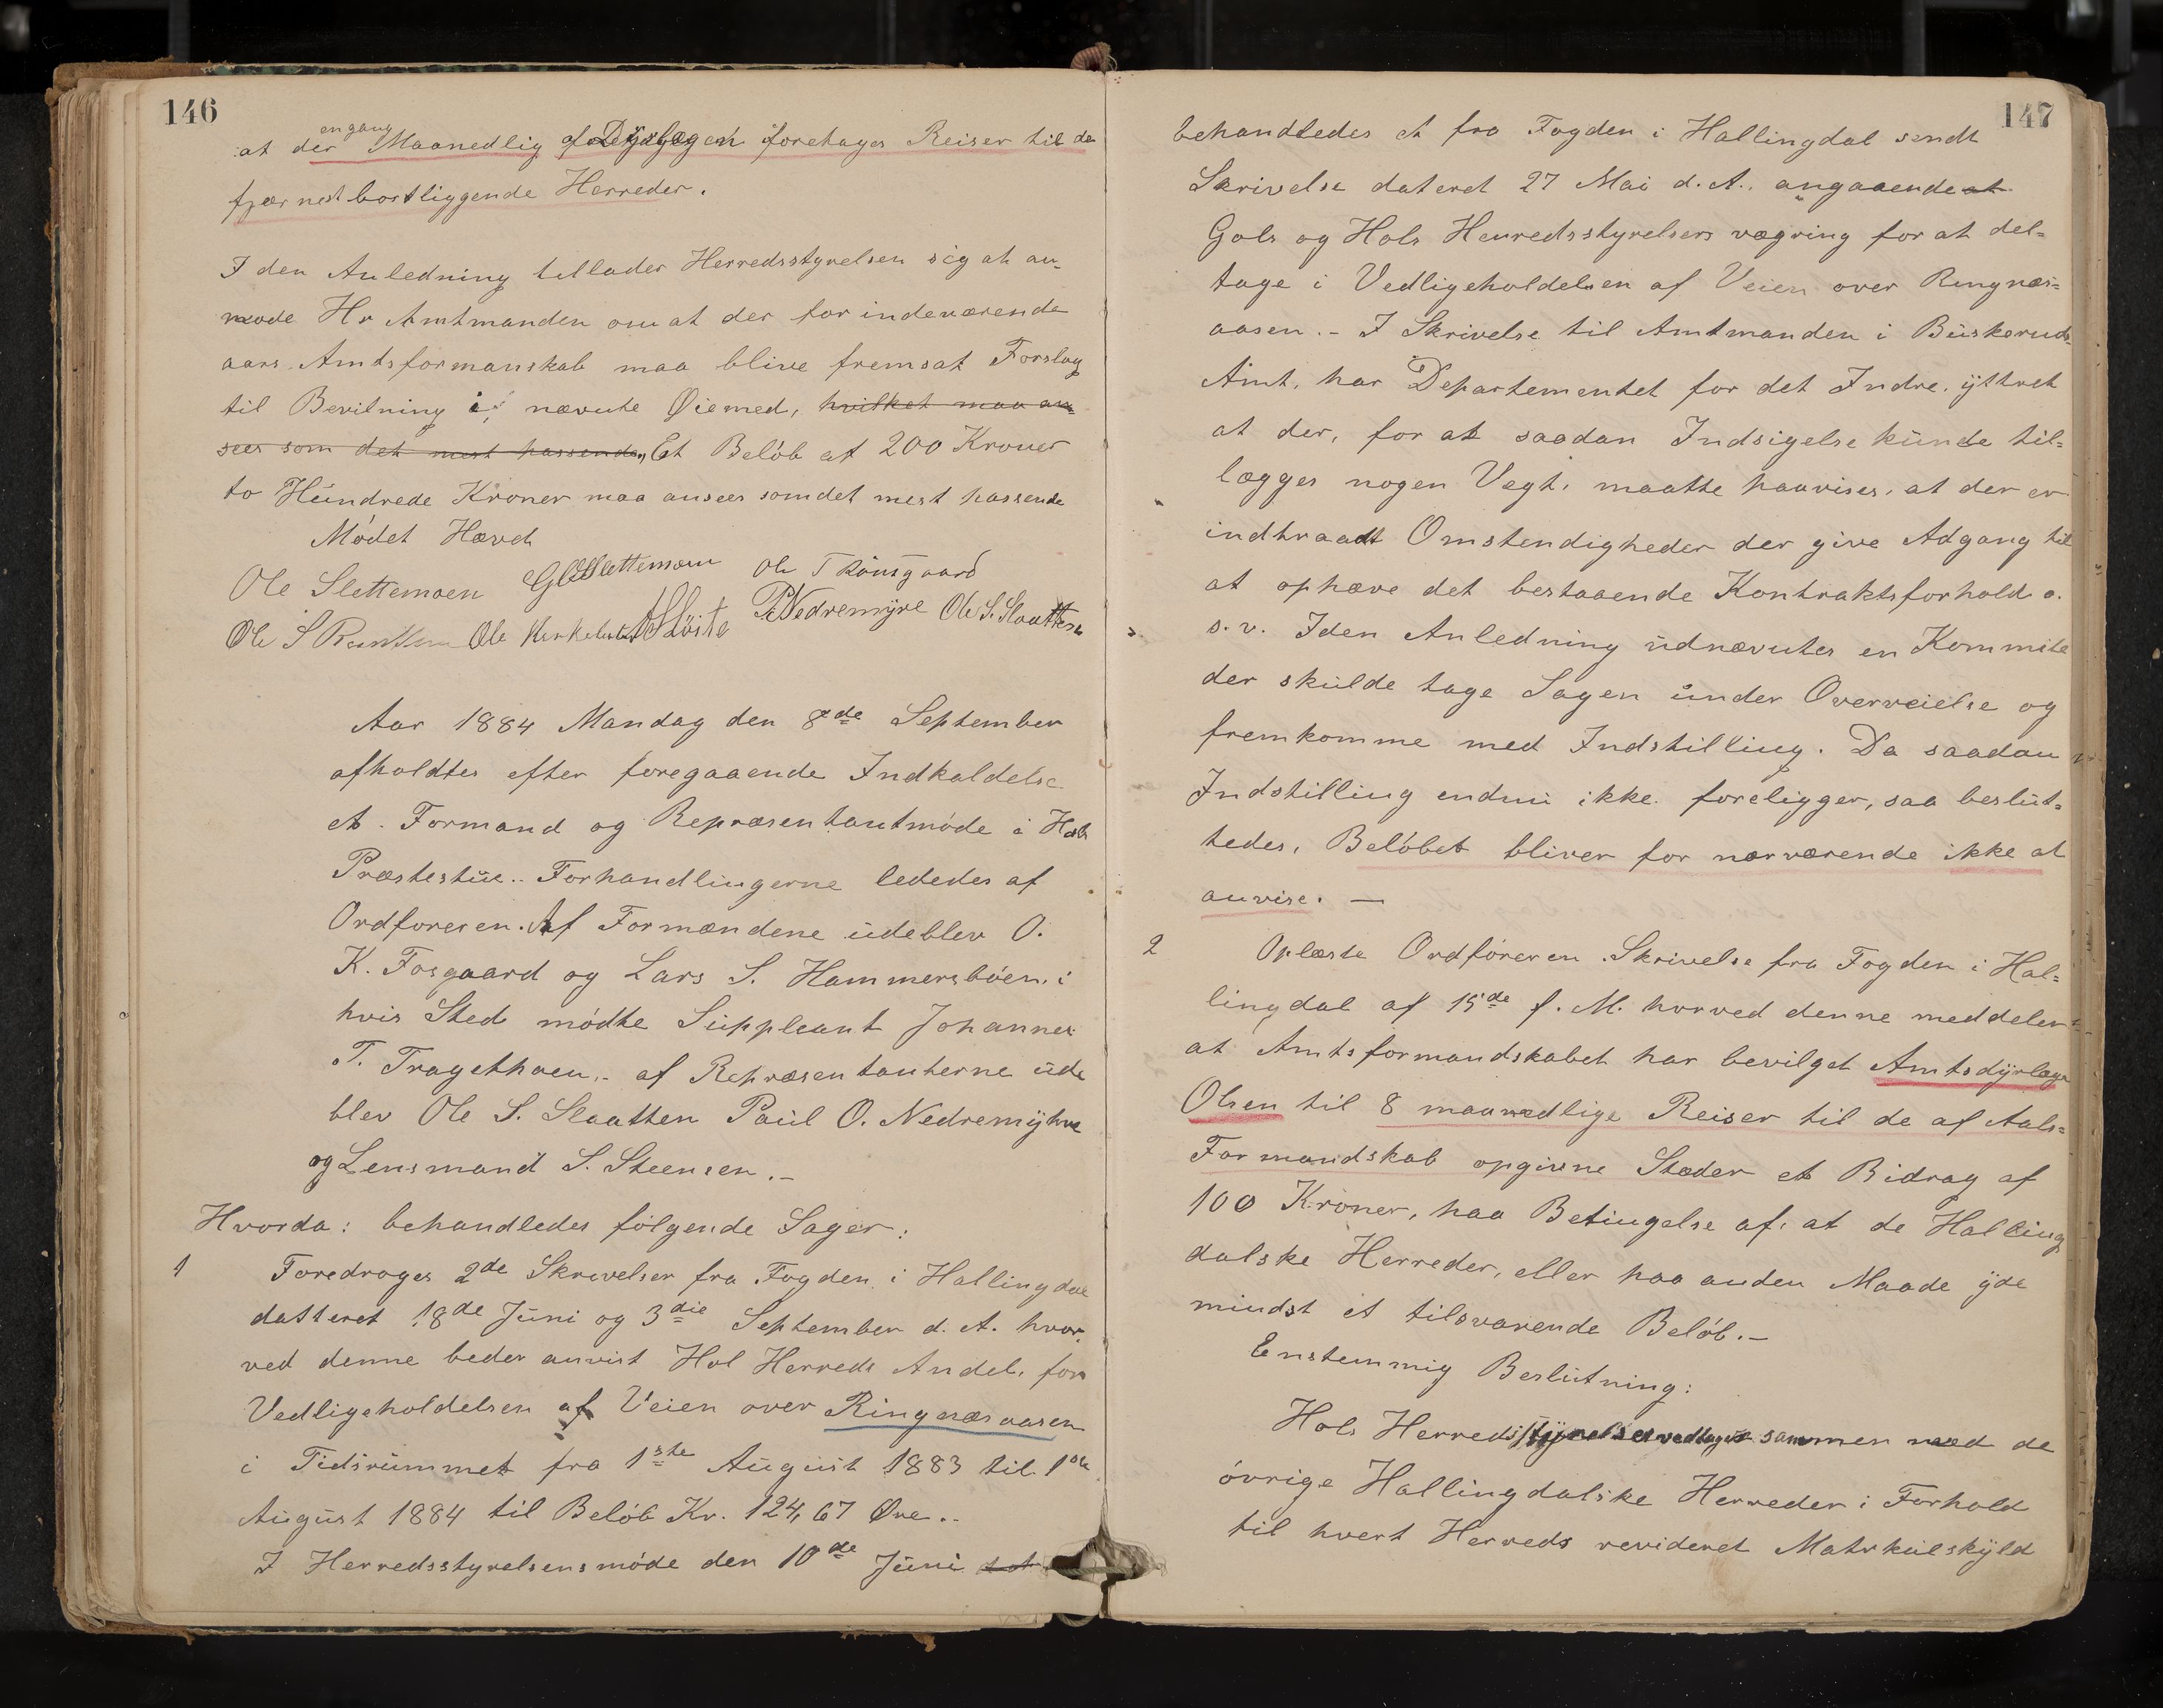 146
engang
at der Maanedlig af Dyrlægen foretages Reiser til de
fjærnest bortliggende Herreder.
I den Anledning tillader Herredsstyrelsen sig at an-
mode Hr Amtmanden om at der for indeværende
aars Amtsformanskab maa blive fremsat Forslag
til Bevilning i nævnte Øiemed, hvilket maa an-
sees som det mest passende, Et Beløb af 200 Kroner
to Hundrede Kroner maa ansees som det mest passende
Mødet Hævet
Ole Slettemoen G O Slettemoen Ole T Raunsgaard
Ole S Ole Kirkebøen P. Nedremyre Ole S. Slaatten
Aar 1884 Mandag den 8de September
afholdtes efter foregaaende Indkaldelse
et Formand og Repræsentantmøde i Hols
Præstestue.. Forhandlingerne lededes af
Ordføreren. Af Formændene udeblev O.
K. Fosgaard og Lars S. Hammersbøen, i
hvis Sted mødte Suppleant Johannes
T. Tragethoen,- af Repræsentanterne ude
blev Ole S. Slaatten Paul O. Nedremyhre
og Lensmand S. Steensen.-
Hvorda: behandledes følgende Sager:
1 Foredroges 2de Skrivelser fra Fogden i Hallingdal
datteret 18de Juni og 3die September d. A. hvor-
ved denne beder anvist Hol Herreds Andel, for
Vedligeholdelsen af Veien over Ringnæsaasen
i Tidsrummet fra 1ste August 1883 til 1ste
August 1884 til Beløb Kr. 124,67 Øre..
I Herredsstyrelsens møde den 10de Juni
147
behandledes et fra Fogden i Hallingdal sendt
Skrivelse dateret 27 Mai d. A., angaaende at
Gols og Hols Heuredsstyrelsers vægring for at del=
tage i Vedligeholdelsen af Veien over Ringnæs=
aasen.- I Skrivelse til Amtmanden i Buskeruds=
Amt, har Departementet for det Indre, yttret
at der, for at saadan Indsigelse kunde til=
lægges nogen Vægt, maatte paavises, at der er
indtraadt Omstendigheder der give Adgang til
at ophæve det bestaaende Kontraktsforhold o.
s. v. I den Anledning udnævntes en Kommite
der skulde tage Sagen under Overveielse og
fremkomme med Indstilling. Da saadan
Indstilling endnu ikke foreligger, saa beslut=
tedes, Beløbet bliver for nærværende ikke at
anvise. —
2 Oplæste Ordføreren Skrivelse fra Fogden i Hal=
lingdal af 15de f. M. hvorved denne meddeler
at Amtsformandskabet har bevilget Amtsdyrlæge
Olsen til 8 maanedlige Reiser til de af Aals=
Formandskab opgivne Stæder et Bidrag af
100 Kroner, paa Betingelse af, at de Halling
dalske Herreder, eller paa anden Maade yde
mindst et tilsvarende Beløb.-
Enstemmig Beslutning:
Hols Herredsstyrelse vedtager sammen med de
øvrige Hallingdalske Herreder i Forhold
til hvert Herreds revideret Matrkulskyld